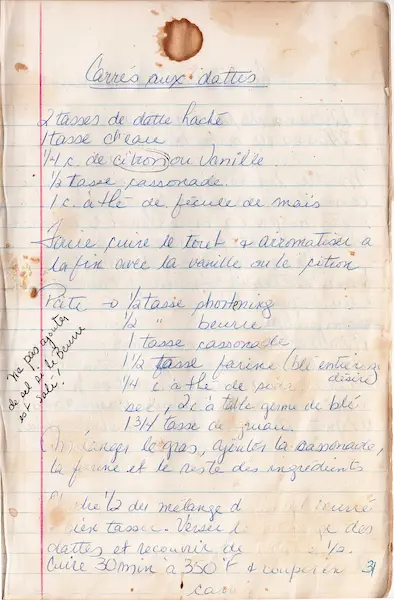 Carrés aux dattes
2 tasses de datte haché
1 tasse d'eau
1/4 c. de citron ou Vanille
1/2 tasse cassonade.
1 c. à thé de fécule de maïs
Faire cuire le tout & arromatiser a
la fin avec la vanille ou le citron
Pâte → 1/2 tasse shortening
1/2 " beurre
1 tasse cassonade
1 1/2 tasse farine (blé entier si
désiré)
1/4 c. à thé de
sel, 2 c. à table germe de blé
1 3/4 tasse de gruau.
ne pas ajouter
de sel si le Beurre
est salé!
Mélanger le gras, ajouter la cassonade,
la farine et le reste des ingrédients
1/2 du mélange d
tasser. Verser des
dattes et recouvrir de 1/2.
Cuire 30 min à 350°F & couper en
31